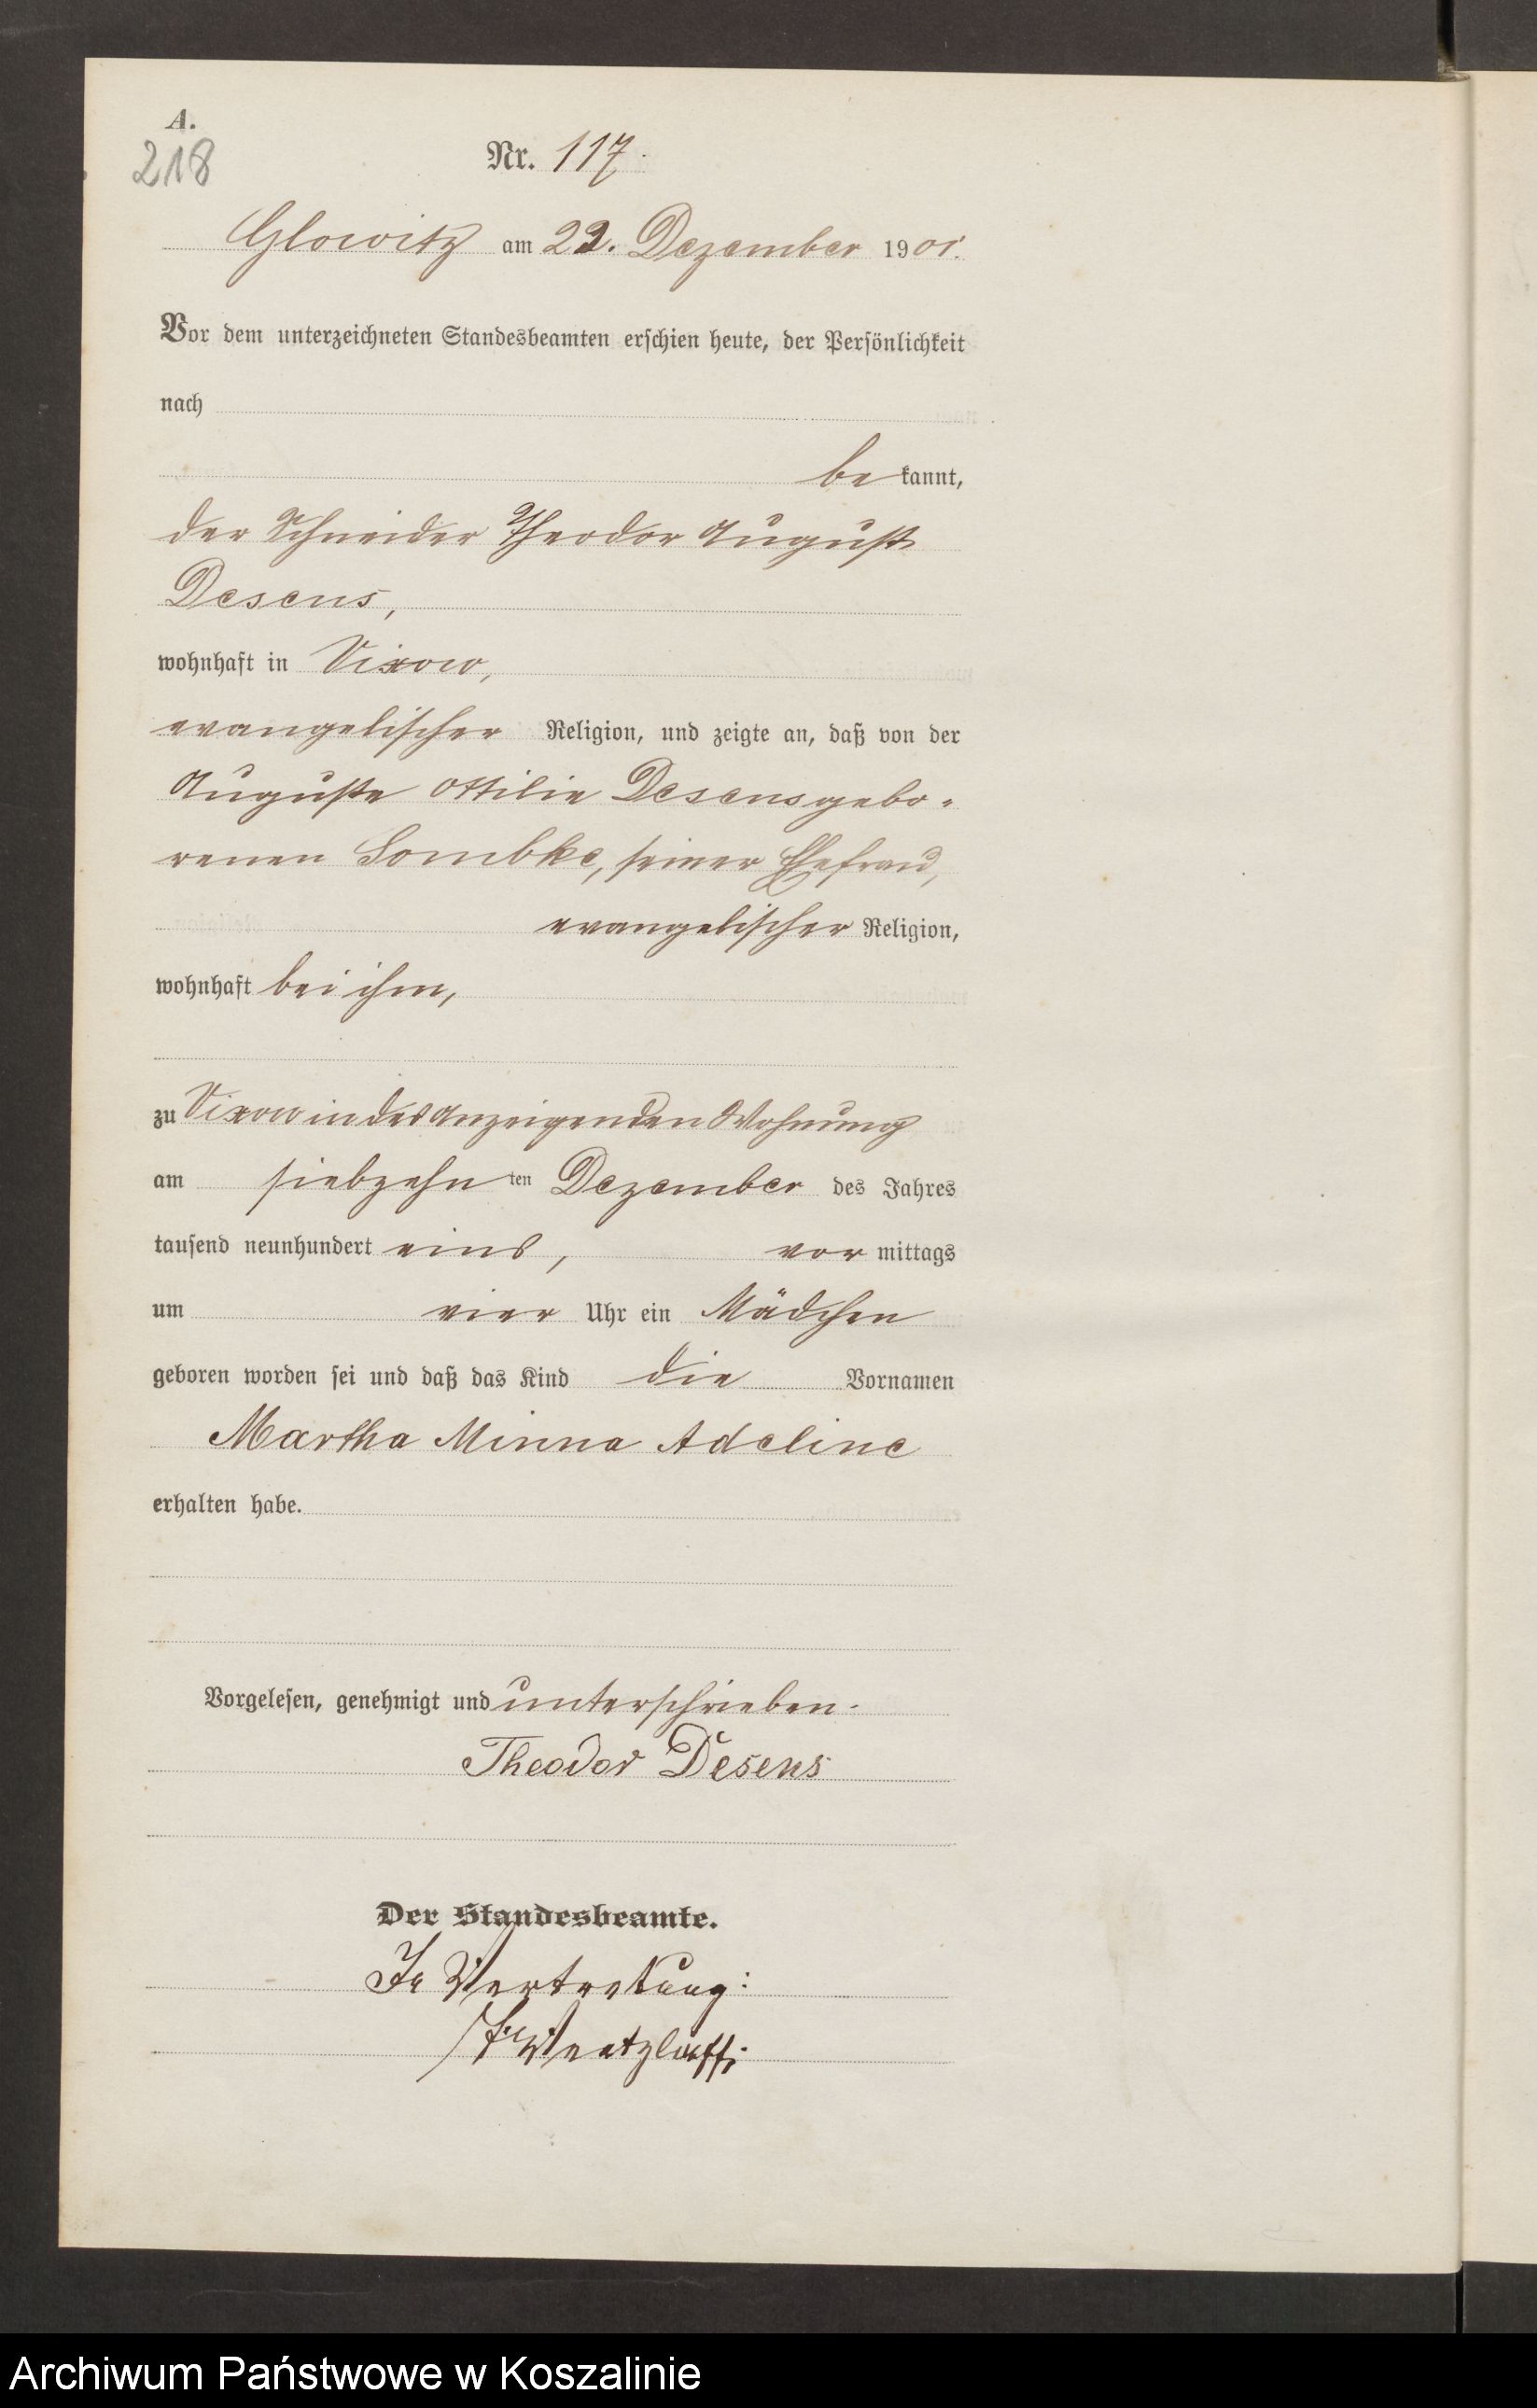 A.
218
Nr. 117.
Glowitz am 22. Dezember 1901.
Vor dem unterzeichneten Standesbeamten erschien heute, der Persönlichkeit
nach
be kannt,
der Schneider Theodor August
Desens,
wohnhaft in Vixow,
evangelischer Religion, und zeigte an, daß von der
Auguste Ottilie Desens gebo-
renen Lombke, seiner Ehefrau,
evangelischer Religion,
wohnhaft bei ihm,
zu Vixow in des Anzeigenden Wohnung
am siebzehn ten Dezember des Jahres
tausend neunhundert eins, vor mittags
um vier Uhr ein Mädchen
geboren worden sei und daß das Kind die Vornamen
Martha Minna Adeline
erhalten habe.
Vorgelesen, genehmigt und unterschrieben.
Theodor Desens
Der Standesbeamte.
In Vertretung:
Archiwum Państwowe w Koszalinie